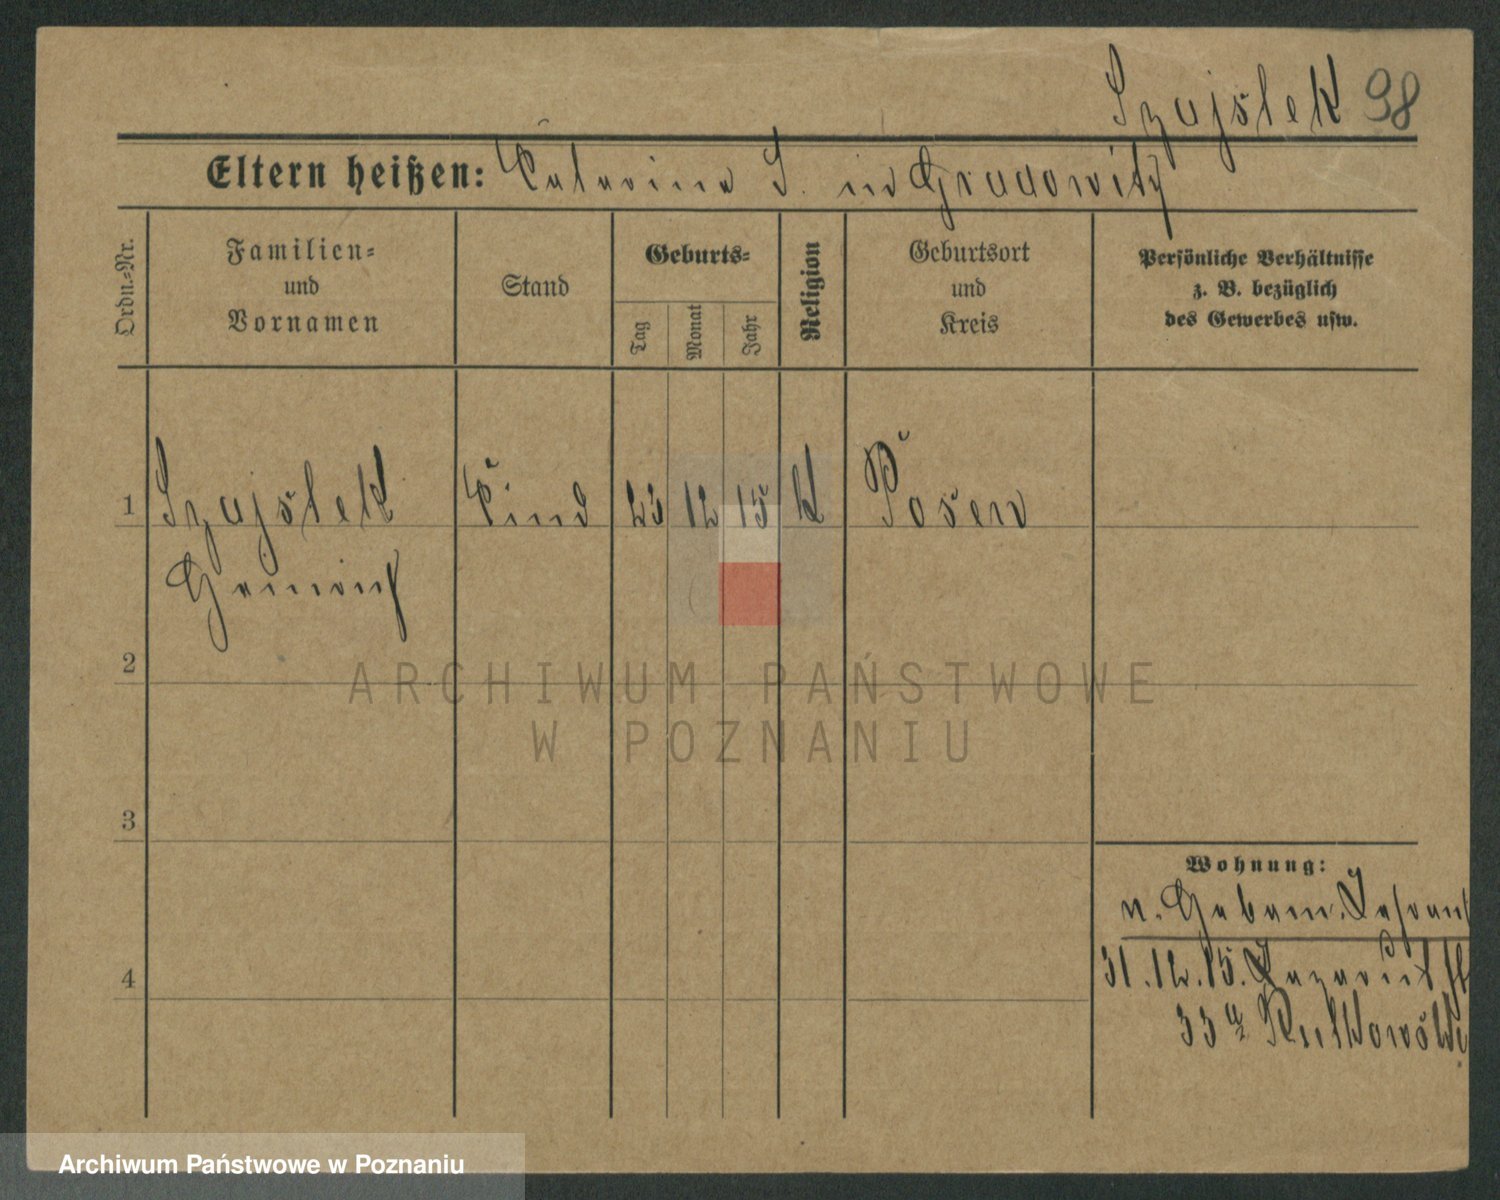 Szajstek 98
Eltern heißen: Catarina S. in Gradowitz
Ordn.-Nr.
Familien-
und
Vornamen
Stand
Geburts-
Tag
Monat
Jahr
Religion
Geburtsort
und
Kreis
Persönliche Verhältnisse
z. B. bezüglich
des Gewerbes usw.
1
Szajstek
23 12 15 K Posen
2
ARCHIWUM PAŃSTWOWE
W POZNANIU
3
Wohnung:
v.
4
31.12.15.
33a
Archiwum Państwowe w Poznaniu